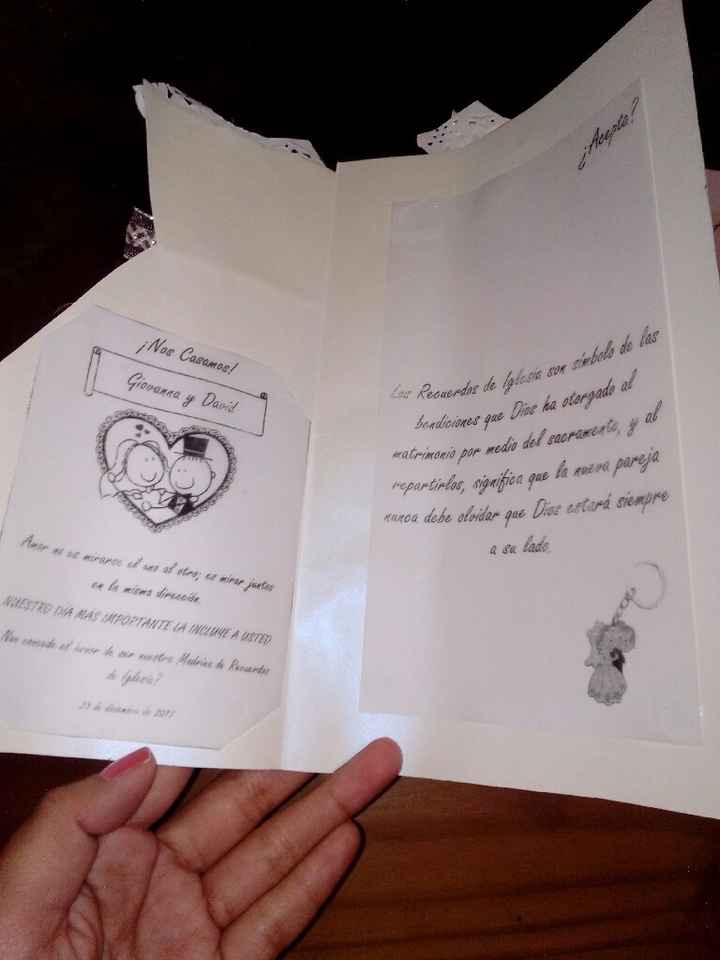 ¡Nos Casamos!
Giovanna y David.
Amor no es mirarse el uno al otro; es mirar juntos
en la misma dirección.
NUESTRO DÍA MÁS IMPORTANTE LA INCLUYE A USTED
Nos concede el favor de ser nuestra Madrina de Recuerdos
de Iglesia?
de diciembre de
¿Acepta?
Los Recuerdos de Iglesia son símbolo de las
bendiciones que Dios ha otorgado al
matrimonio por medio del sacramento, y al
repartirlos, significa que la nueva pareja
nunca debe olvidar que Dios estará siempre
a su lado.